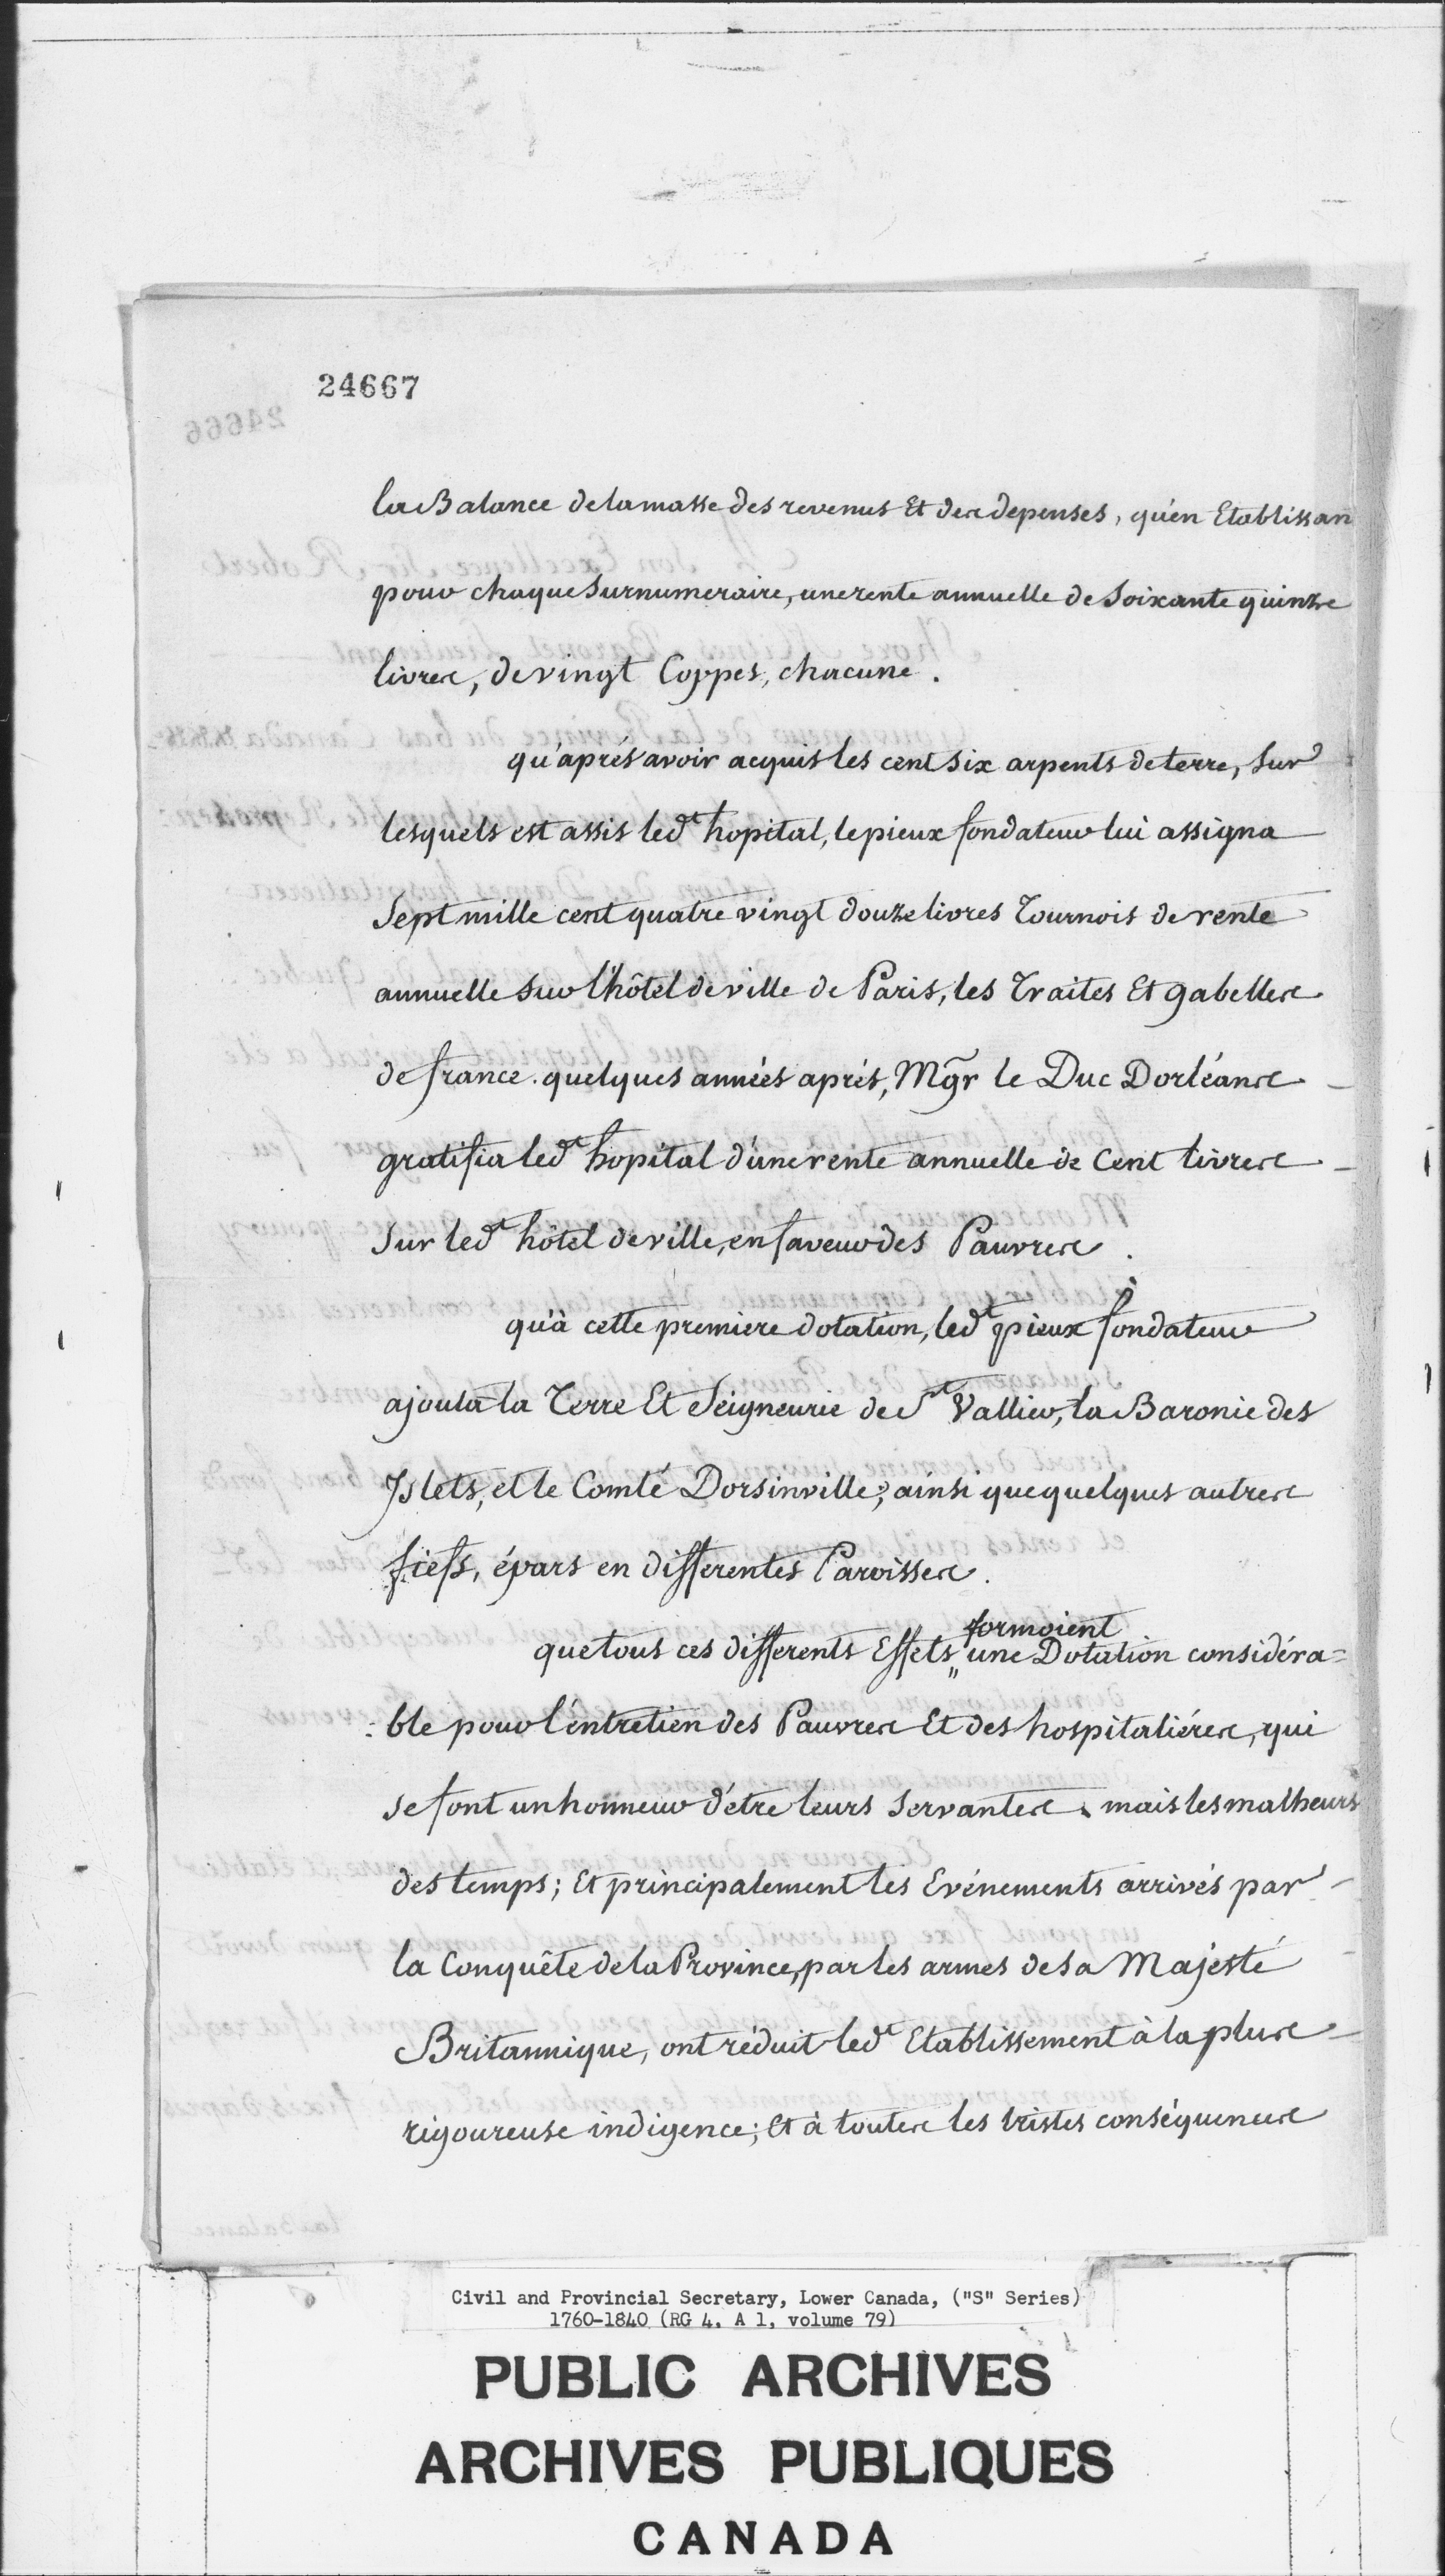 24667
la Balance de la masse des revenus Et des depenses, qu'en Etablissan
pour chaque Surnumeraire, une rente annuelle de Soixante quinze
livres, de vingt Coppes, chacune.
qu'aprés avoir acquis les cent six arpents de terre, Sur
lesquels est assis led.t hopital, le pieux fondateur lui assigna
Sept mille cent quatre vingt douze livres Tournois de rente
annuelle Sur l'hôtel de ville de Paris, les Traites Et gabelles
de france. quelques années aprés, Mgr le Duc Dorléans
gratifia led.t hopital d'une rente annuelle de Cent livres
Sur led.t hôtel de ville, en faveur des Pauvres.
qu'à cette premiere dotation, led.t pieux fondateur
ajouta la Terre Et Seigneurie de S.t Vallier, la Baronie des
Islets, et le Comté Dorsinville; ainsi que quelques autres
fiefs, épars en differentes Paroisses.
que tous ces differents Effets formoient une Dotation considéra=
:ble pour l'entretien des Pauvres Et des hospitaliéres, qui
se font un honneur d'étre leurs Servantes. mais les malheurs
des temps; Et principalement les Evénements arrivés par
la Conquête de la Province, par les armes de Sa Majesté
Britannique, ont réduit led.t Etablissement à la plus
rigoureuse indigence; Et à toutes les tristes conséquences
Civil and Provincial Secretary, Lower Canada, ("S" Series)
1760-1840 (RG 4, A 1, volume 79)
PUBLIC ARCHIVES
ARCHIVES PUBLIQUES
CANADA